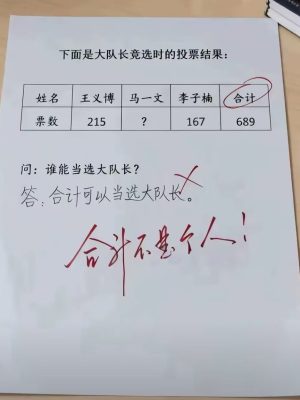 下面是大队长竞选时的投票结果：
姓名 王义博 马一文 李子楠 合计
票数 215 ? 167 689
问：谁能当选大队长？
答：合计可以当选大队长。
合计不是个人！